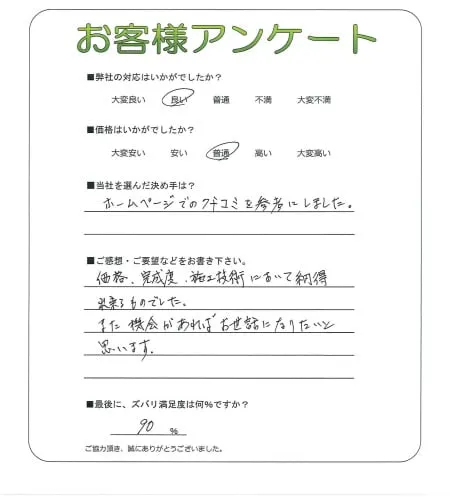 お客様アンケート
■弊社の対応はいかがでしたか？
大変良い 良い 普通 不満 大変不満
■価格はいかがでしたか？
大変安い 安い 普通 高い 大変高い
■当社を選んだ決め手は？
ホームページでのクチコミを参考にしました。
■ご感想・ご要望などをお書き下さい。
価格、完成度、施工技術において納得
出来るものでした。
また機会があればお世話になりたいと
思います。
■最後に、ズバリ満足度は何％ですか？
90 ％
ご協力頂き、誠にありがとうございました。